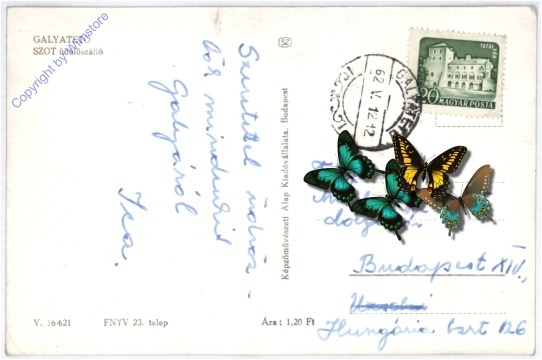 GALYATETŐ
SZOT üdülőszálló
Copyright by Wimstore
Szeretettel üdvöz-
lök mindenkit
Galyáról
Ica.
V. 16-621
FNYV 23. telep
Ára: 1,20 Ft
Képzőművészeti Alap Kiadóvállalata, Budapest
62 V. 12. 12
GALYATETŐ
TATAI VÁR
20
MAGYAR POSTA
Budapest XIV.,
Hungária krt 126